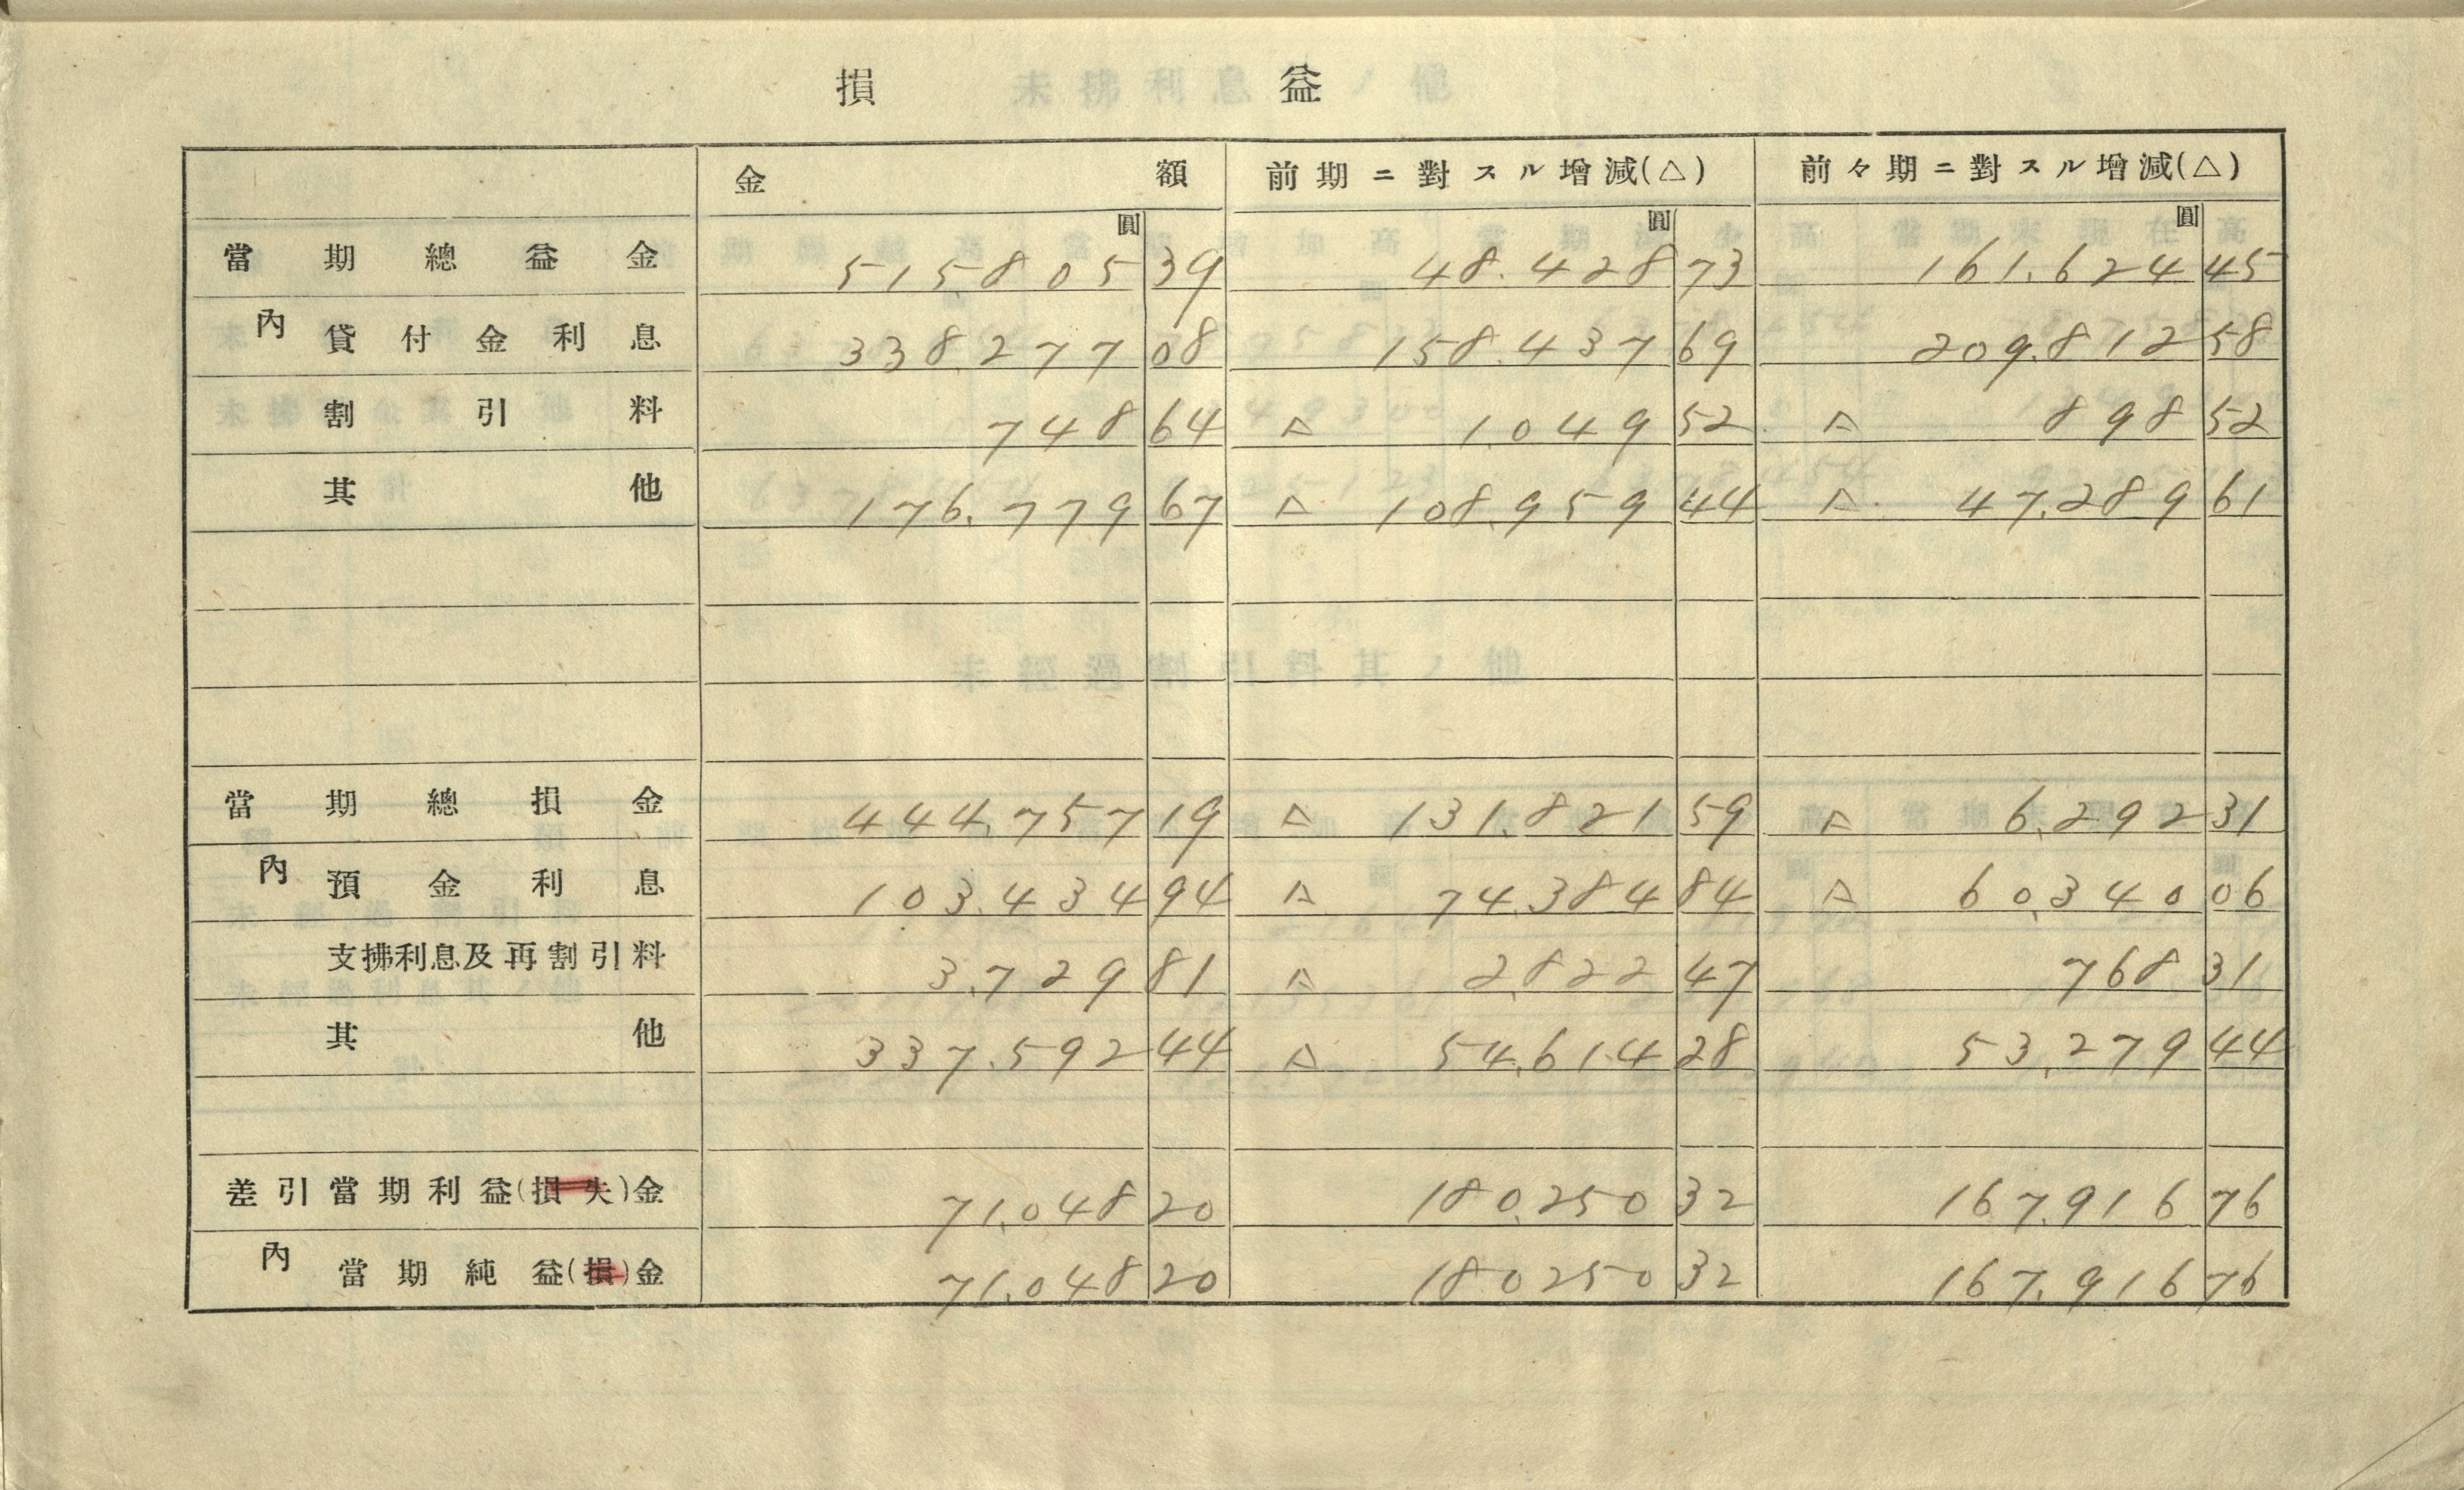 損益
金額 前期ニ對スル增減(△) 前々期ニ對スル增減(△)
圓 圓 圓
當期總益金 515805 39 48.428 73 161.624 45
內 貸付金利息 338.277 08 158.437 69 209.812 58
割引料 748 64 △ 1.049 52 △ 898 52
其他 176.779 67 △ 108.959 44 △ 47.289 61
當期總損金 444.757 19 △ 131.821 59 △ 6.292 31
內 預金利息 103.434 94 △ 74.384 84 △ 60.340 06
支拂利息及再割引料 3.729 81 △ 2.822 47 768 31
其他 337.592 44 △ 54.614 28 53.279 44
差引當期利益(損失)金 71.048 20 180.250 32 167.916 76
內 當期純益(損)金 71.048 20 180250 32 167.916 76